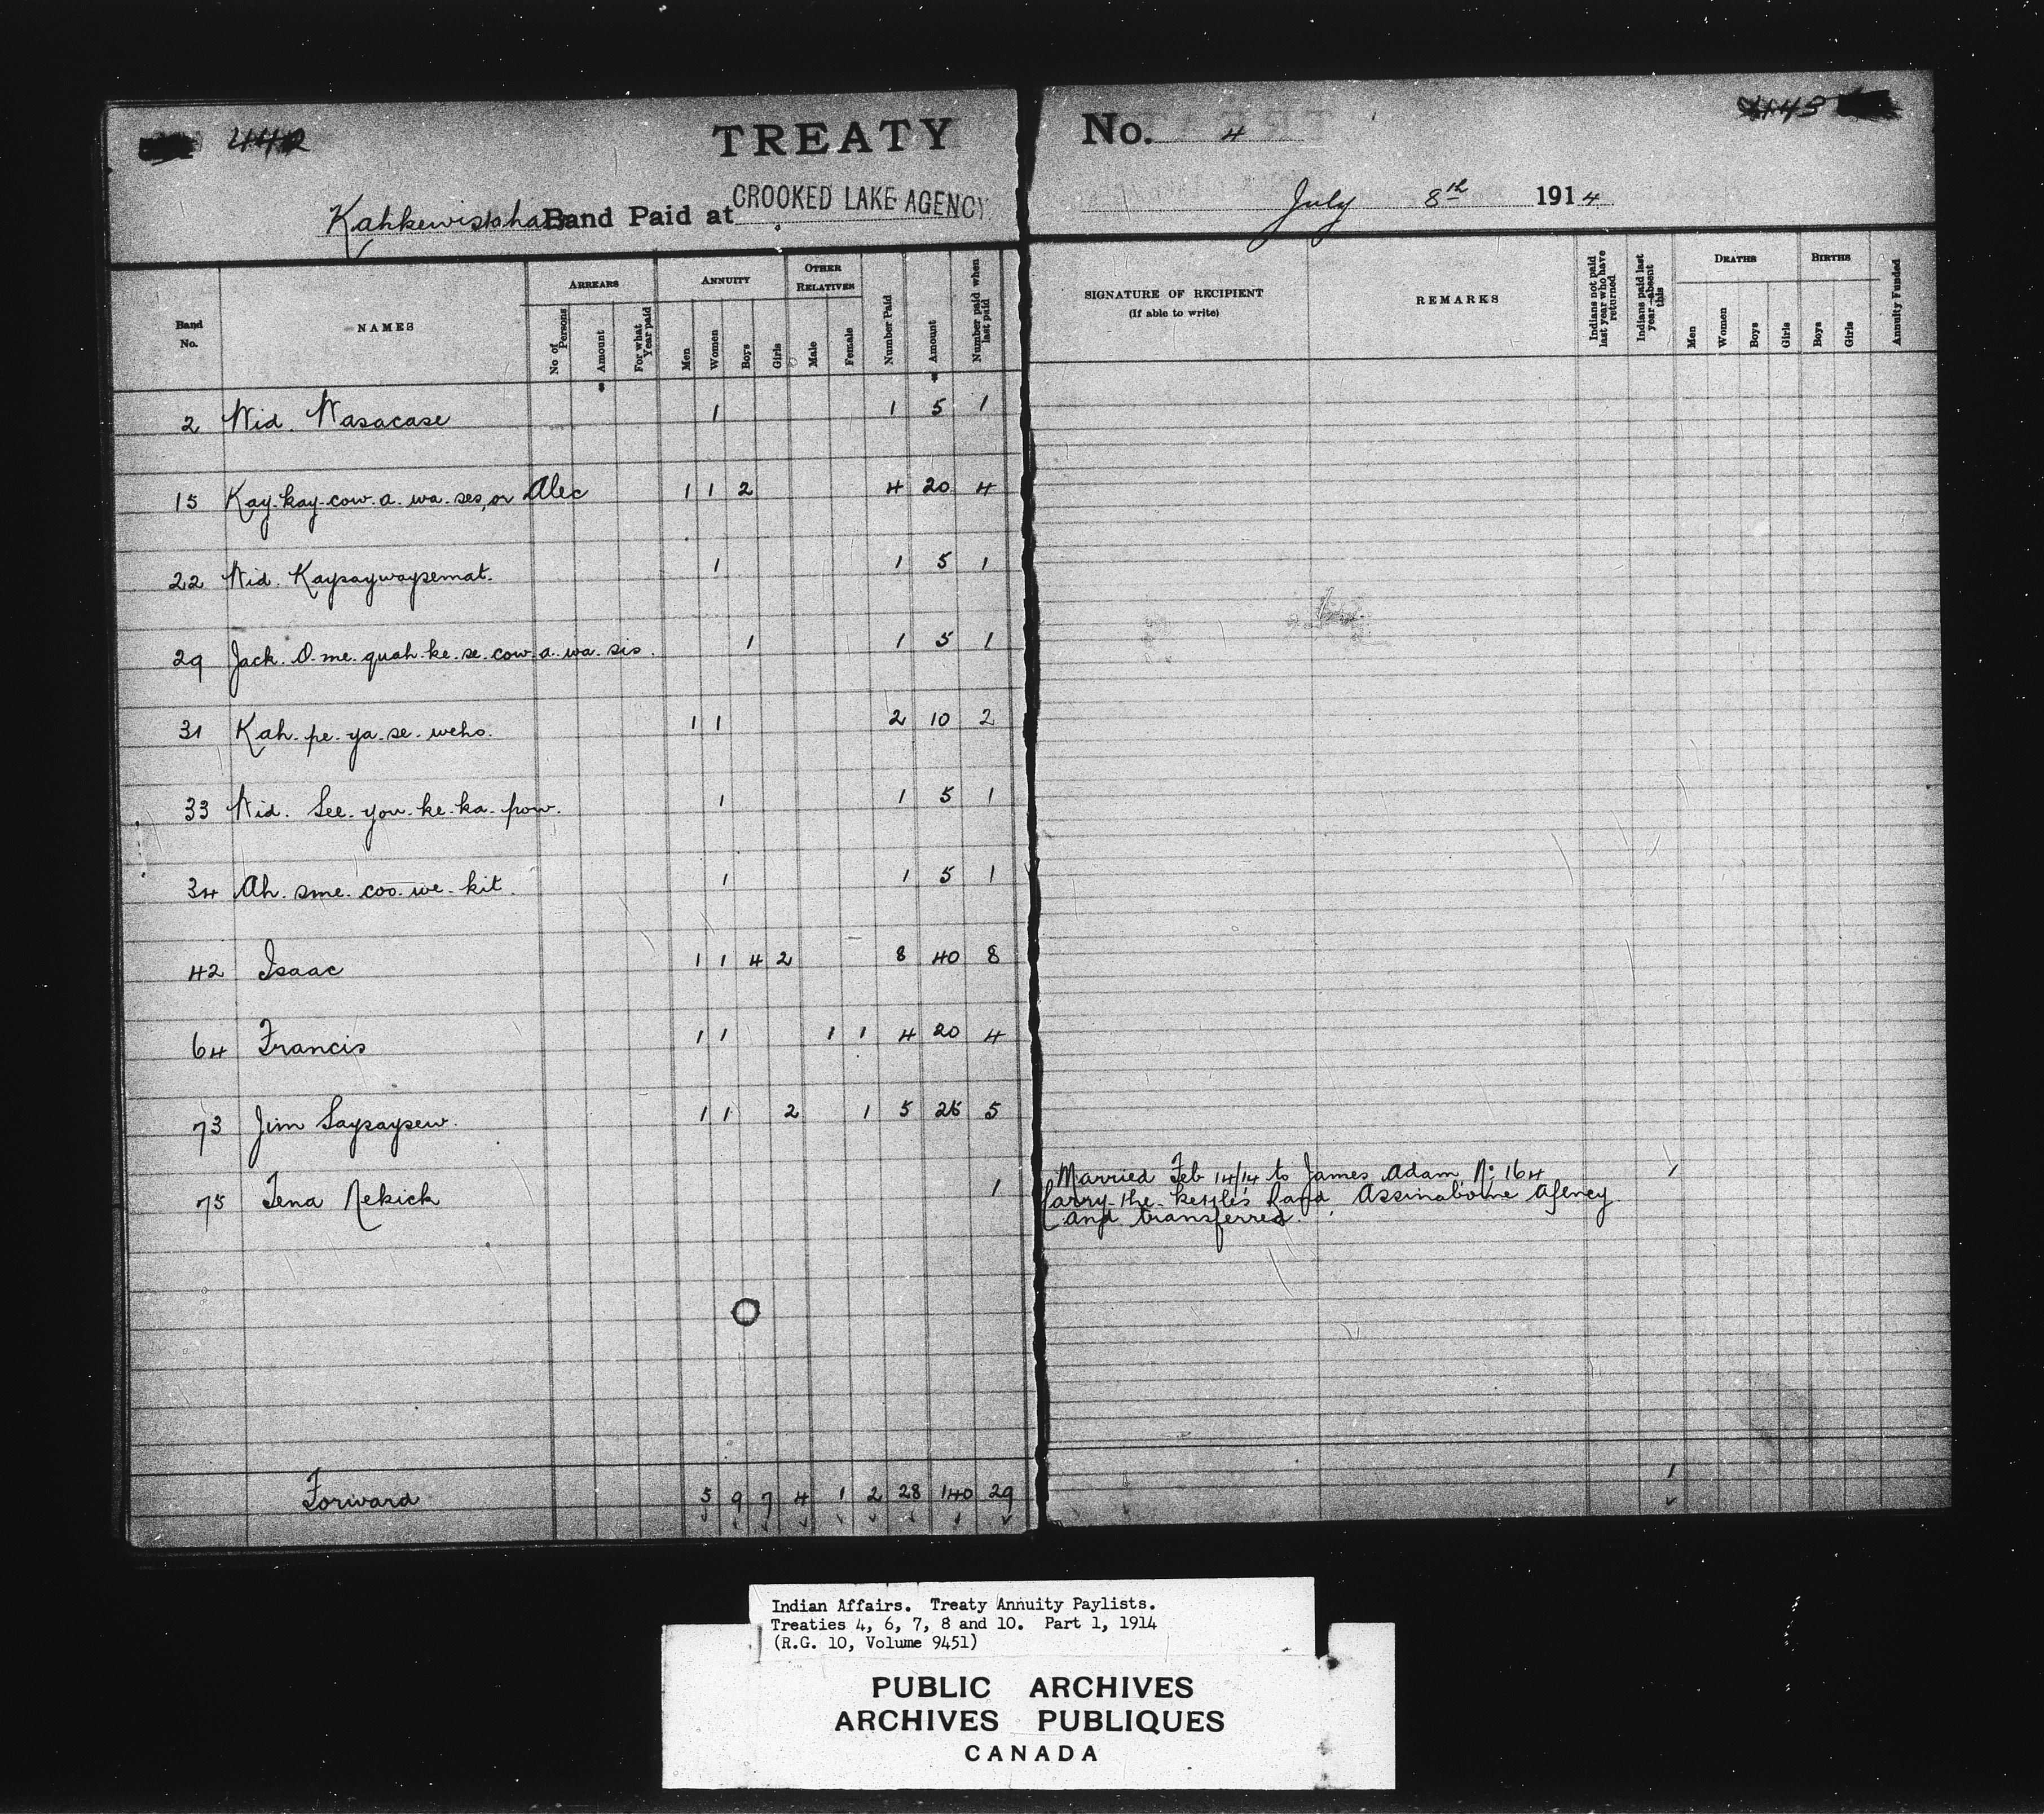 442
TREATY No. 4
443
Kahkewistahaw Band Paid at CROOKED LAKE AGENCY July 8th 1914
Band No.
NAMES
ARREARS
No of Persons
Amount
For what Year paid
ANNUITY
Men
Women
Boys
Girls
OTHER RELATIVES
Male
Female
Number Paid
Amount
Number paid when last paid
SIGNATURE OF RECIPIENT
(If able to write)
REMARKS
Indians not paid last year who have returned
Indians paid last year—absent this
DEATHS
Men
Women
Boys
Girls
BIRTHS
Boys
Girls
Annuity Funded
2 Wid. Wasacase 1 1 5 1
15 Kay-kay-cow-a-wa-ses, or Alec 1 1 2 4 20 4
22 Wid. Kaysaywaysemat. 1 1 5 1
29 Jack. O-me-quah-ke-se-cow-a-wa-sis. 1 1 5 1
31 Kah-pe-ya-se-weho. 1 1 2 10 2
33 Wid. See-you-ke-ka-pow. 1 1 5 1
34 Ah-sme-coo-we-kit. 1 1 5 1
42 Isaac 1 1 4 2 8 40 8
64 Francis 1 1 1 1 4 20 4
73 Jim Saysaysew. 1 1 2 1 5 25 5
75 Tena Nekick 1 Married Feb 14/14 to James Adam No 164 1
Carry-the-kettle's Band, Assinaboine Agency
and transferred.
Forward 5 9 7 4 1 2 28 140 29 1
Indian Affairs. Treaty Annuity Paylists.
Treaties 4, 6, 7, 8 and 10. Part 1, 1914
(R.G. 10, Volume 9451)
PUBLIC ARCHIVES
ARCHIVES PUBLIQUES
CANADA